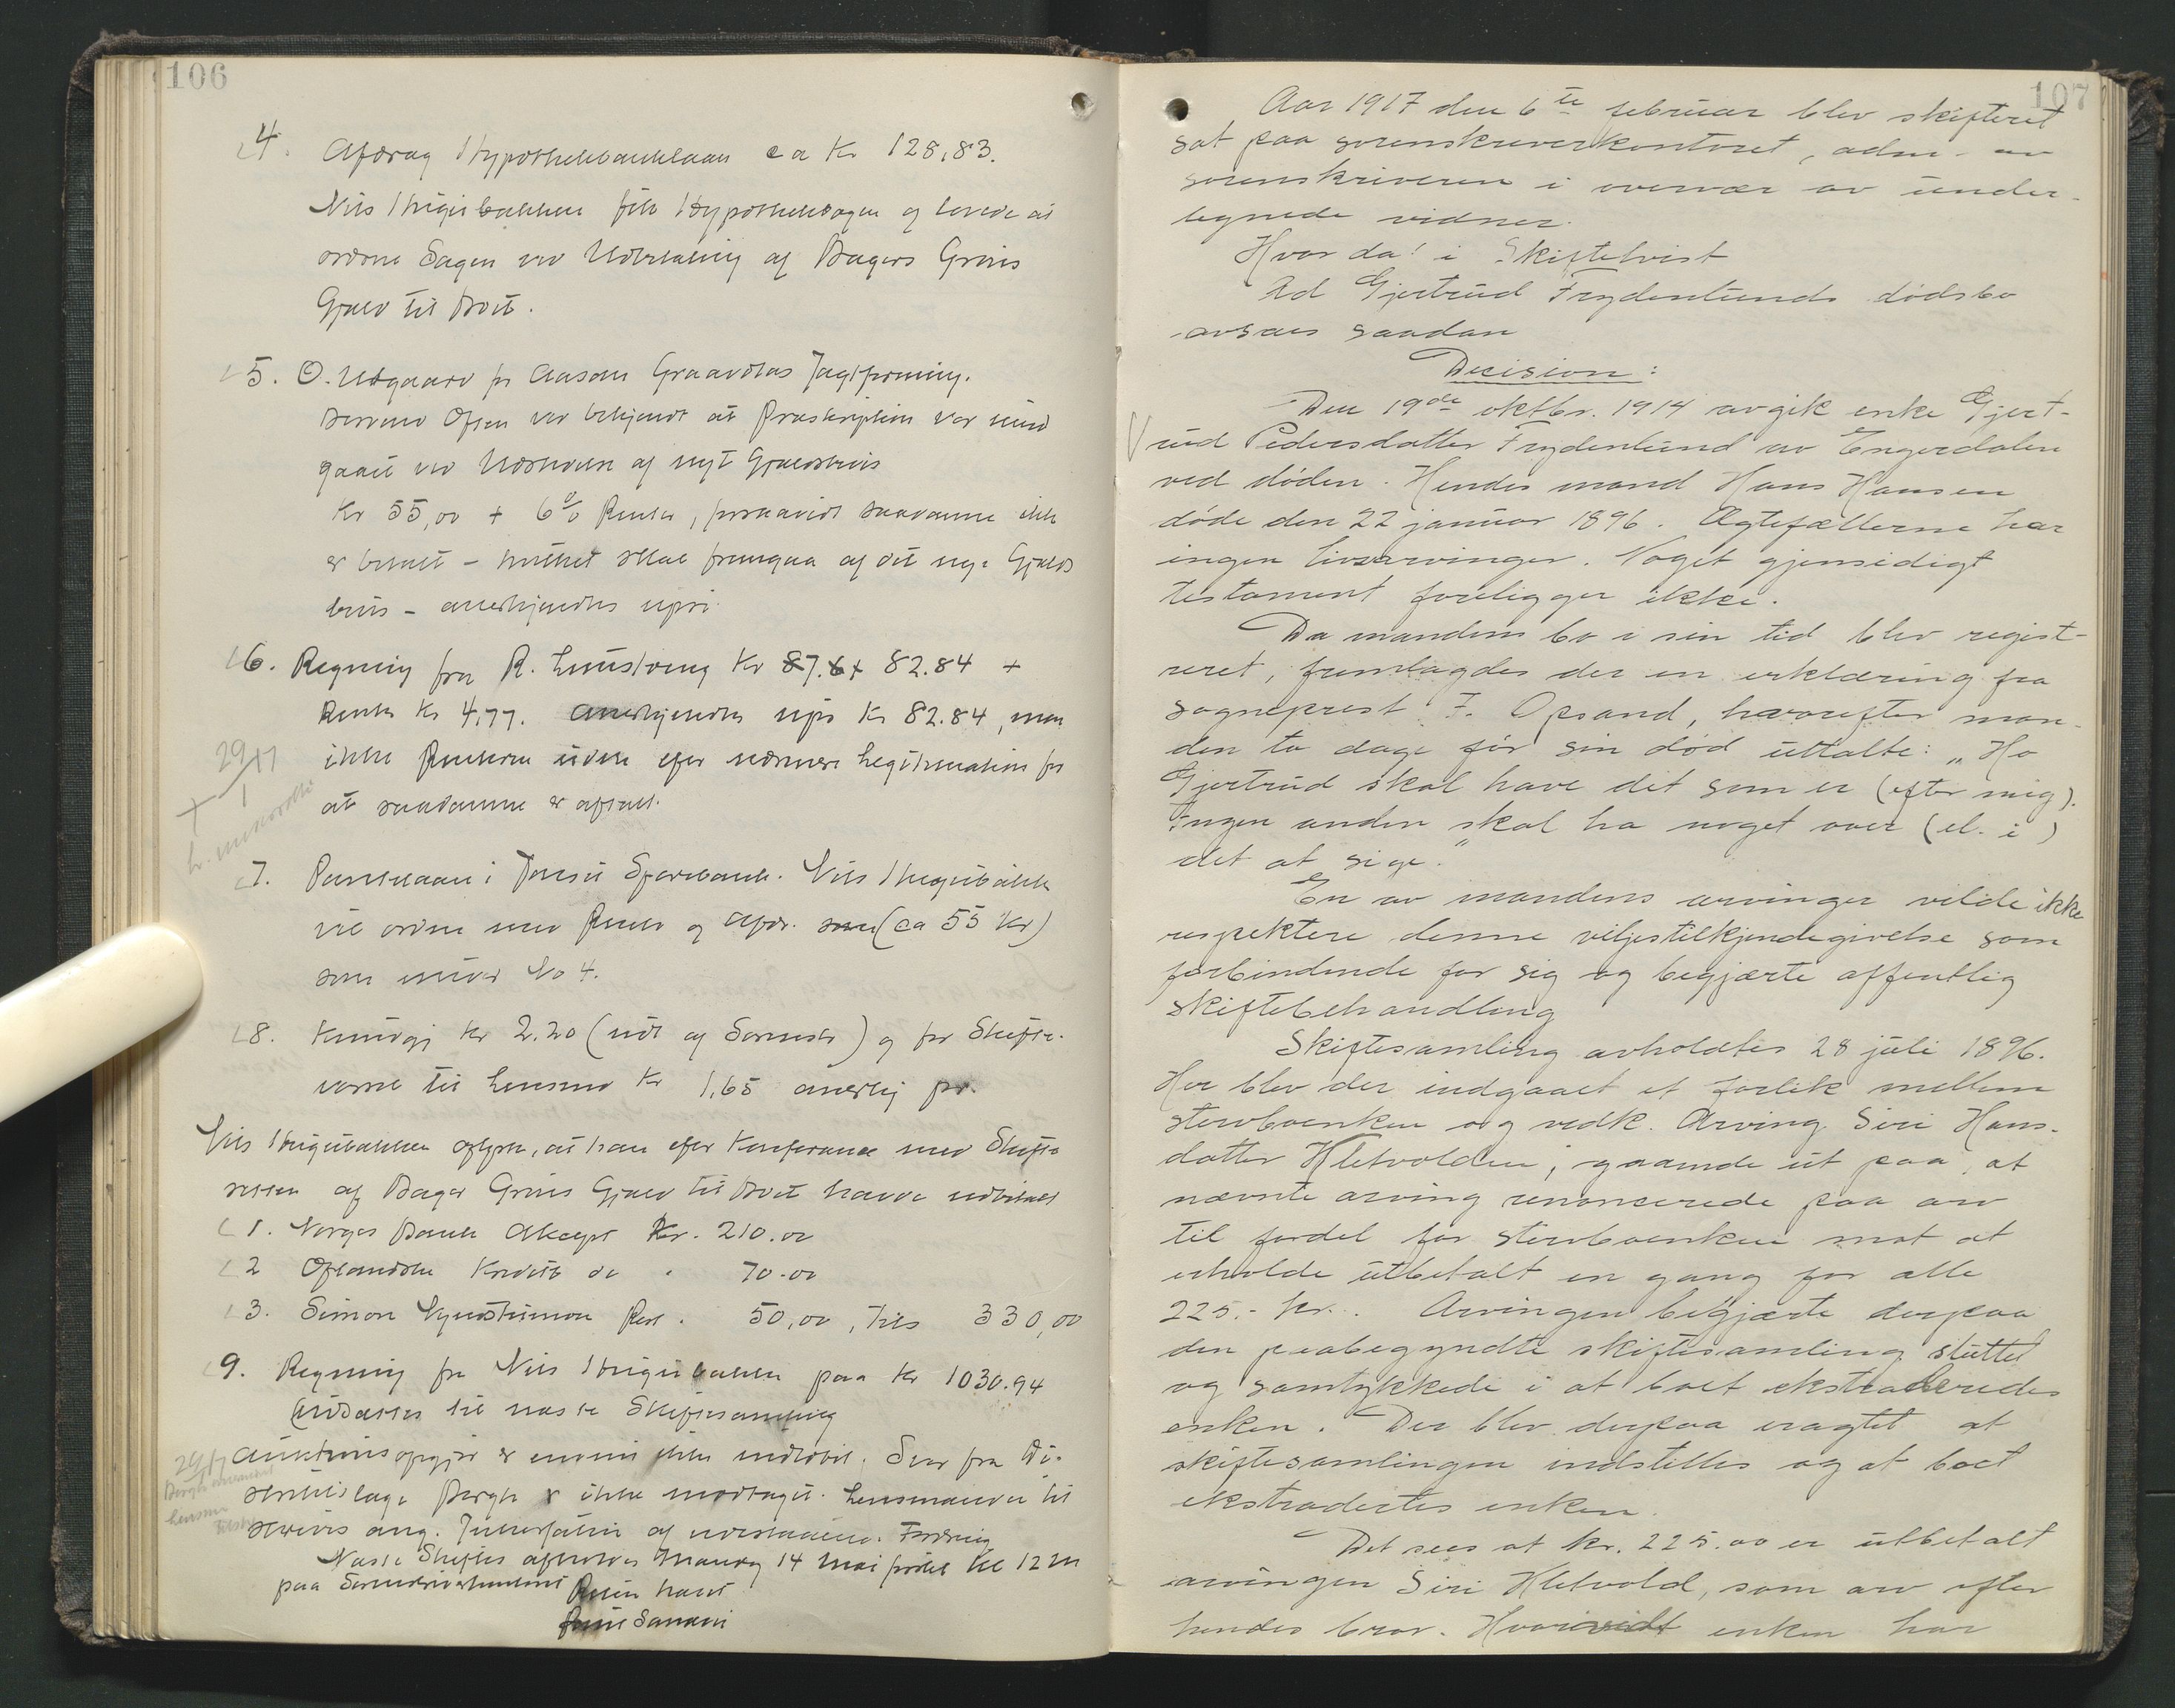 106
4. Afdrag Hypothekbanklaan ca Kr 128,83.
Nils fik Hypotheksagen og lovede at
ordne Sagen ved Udbetaling af Bagers Griis
Gjæld til Boet.
5. O. Udgaard for Aasom Graavolas Jagtforening.
var bekjendt at Præskription var
gaaet ved Udstedelse af nyt Gjældsbrev
Kr 55,00 + 6% Renter, forsaavidt saadanne ikke
er betalt - hvilket skal fremgaa af det nye Gjælds
brev - anerkjendtes
6. Regning fra R. Kr 82.84 +
Renter Kr 4,77. Anerkjendtes Kr 82.84, men
ikke Renterne uden efter nærmere Legitimation for
at saadanne er aftalt.
29/1 17
7. Banklaan i Sparebank. Nils
vil ordne med Renter og Afdr. (ca 55 Kr)
som under No 4.
8. Kundgj Kr 2.20 (udl af Sorenskr) og for Skifte-
varsel til Lensmd Kr 1,65 anerkj
Nils oplyste, at han efter Konferance med Skifte
retten af Bager Griis Gjæld til Boet havde udbetalt
1. Norges Bank Akcept Kr. 210.00
2 Oplandske Kredittb do " 70.00
3. Simon Rest " 50,00, tils 330,00
9. Regning fra Nils paa Kr 1030.94
udsættes til næste Skiftesamling
29/1 17
Auktionsopgjør er endnu ikke indløbet. Svar fra Di-
striktslæge Bergh er ikke modtaget. Lensmanden til
skrives ang. af Fordring
Næste Skifte afholdes Mandag 14 Mai førstk Kl 12 M
paa Sorenskriverkontoret
107
Aar 1917 den 6te februar blev skifteret
sat paa sorenskriverkontoret, adm. av
sorenskriveren i overvær av under-
tegnede vidner.
Hvorda! i Skiftelvist
Ad Gjertrud Frydenlunds dødsbo
avsaes saadan
Decision:
Den 19de oktbr. 1914 avgik enke Gjert-
rud Pedersdatter Frydenlund av Engerdalen
ved døden. Hendes mand Hans Hansen
døde den 22 januar 1896. Ægtefællerne har
ingen livsarvinger. Noget gjensidigt
testament foreligger ikke.
Da mandens bo i sin tid blev regist-
reret, fremlagdes der en erklæring fra
sogneprest F. Opsand, hvorefter man-
den to dage før sin død uttalte: „Ho
Gjertrud skal have det som er (efter mig).
Ingen anden skal ha noget over (el. i)
det at sige."
En av mandens arvinger vilde ikke
respektere denne viljestilkjendegivelse som
forbindende for sig og begjærte offentlig
skiftebehandling
Skiftesamling avholdtes 28 juli 1896.
Her blev der indgaaet et forlik mellem
stervboenken og vedk. Arving Siri Hans-
datter Kletvolden, gaaende ut paa, at
nævnte arving renoncerede paa arv
til fordel for stervboenken mot at
erholde utbetalt en gang for alle
225.- kr.. Arvingen begjærte derpaa
den paabegyndte skiftesamling sluttet
og samtykkede i at boet ekstraderedes
enken. Der blev derpaa eragtet at
skiftesamlingen indstilles og at boet
ekstradertes enken.
Det sees at kr. 225.00 er utbetalt
arvingen Siri Kletvold, som arv efter
hendes bror. Hvorvidt enken har